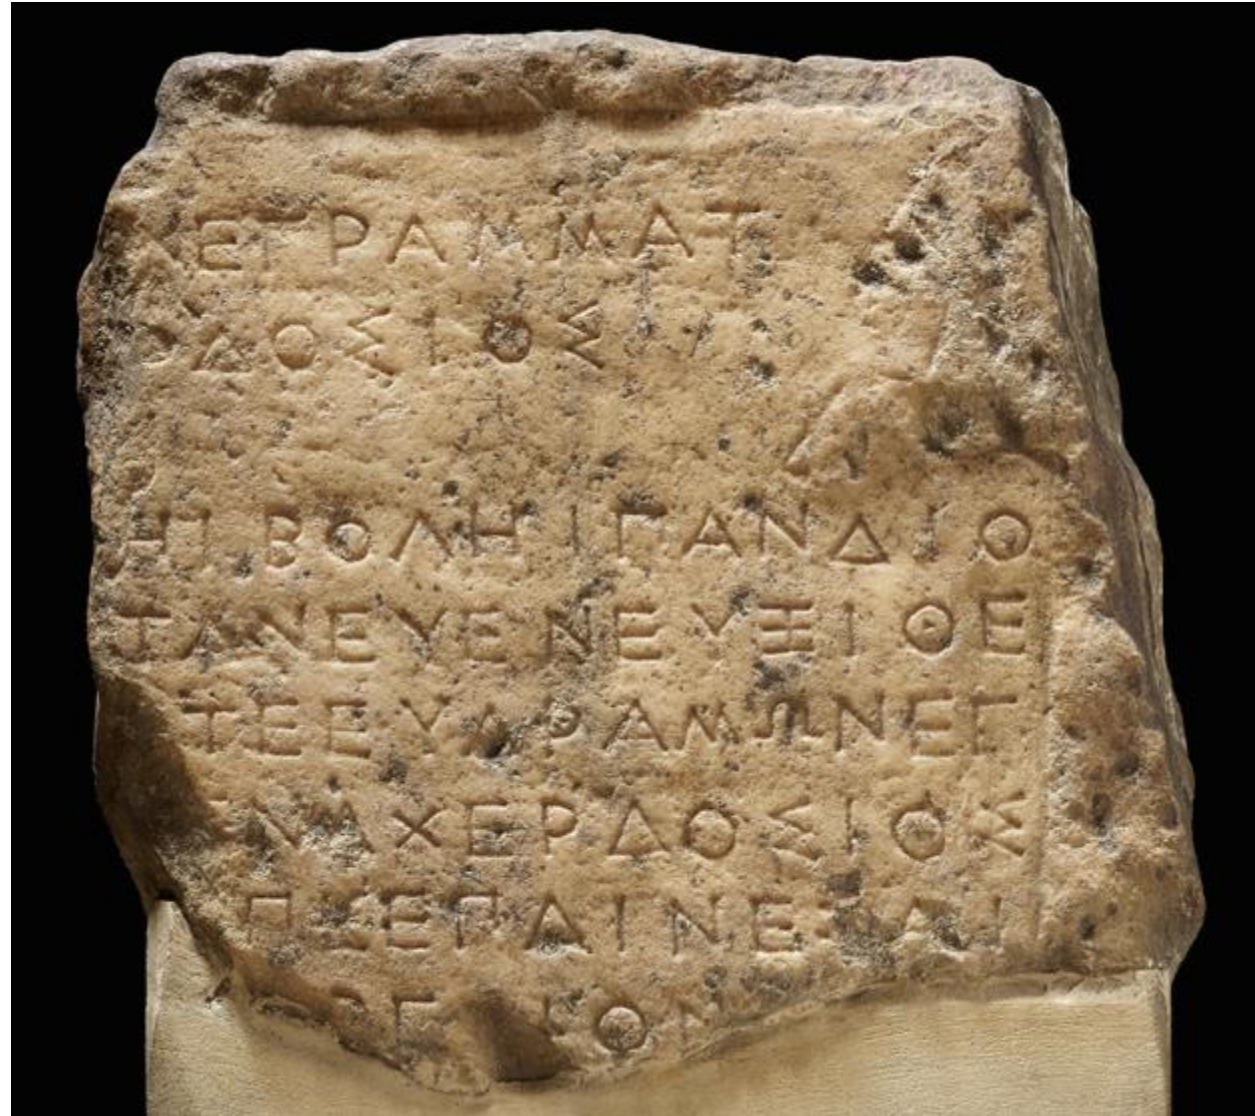 ΕΓΡΑΜΜΑΤ
ΔΟΣΙΟΣ
ΗΙΒΟΛΗΙΠΑΝΔΙΟ
ΤΑΝΕΥΕΝΕΥΞΙΘΕ
ΤΕΕΥΔΡΑΜΩΝΕΓ
ΑΧΕΡΔΟΣΙΟΣ
ΠΕΕΠΑΙΝΕΣΑΙ